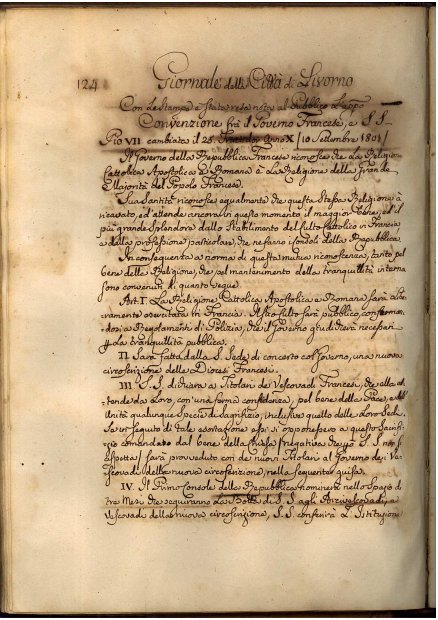 124 Giornale della Città di Livorno
Con le Stampe è Stata resa nota al Pubblico la
Convenzione frà il Governo Francese, e S. S.
Pio VII cambiata il 23 Anno X / 10 Settembre 1801 /
Il Governo della Repubblica Francese riconosce che la Religione
Cattolica Apostolica e Romana è la Religione della Grande
Majorità del Popolo Francese.
Sua Santità riconosce egualmente che questa Stessa Religione à
ricavato, ed attende ancora in questo momento il maggior bene, ed il
più grande Splendore dallo Stabilimento del Culto Cattolico in Francia
e dalla professione particolare, che ne fanno i Consoli della Repubblica.
In conseguenza a norma di questa mutua riconoscenza, tanto pel
bene della Religione, che pel mantenimento della tranquillità interna
sono convenuti di quanto segue
Art. I La Religione Cattolica Apostolica e Romana sarà libe=
ramente esercitata in Francia. Il suo Culto sarà pubblico, conforman=
dosi a Regolamenti di Polizia, che il Governo giudicherà necessari
la tranquillità pubblica.
II. Sarà fatta dalla S. Sede di concerto col Governo, una nuova
circoscrizione delle Diocesi Francesi.
III. S. S. dichiara a Titolari de Vescovadi Francesi, che ella at=
tende da Loro, con una ferma confidenza, pel bene della Pace, e dell'
Unità qualunque Specie di Sagrifizio, inclusive quello delle Loro Sede.
Se in seguito di tale esortazione essi si opponessero a questo Sacrifi=
zio comandato dal bene della Chiesa (negativa che S. S. non si
aspetta) sarà provveduto con de nuovi Titolari al Governo dei Ve=
scovadi della nuova circoscrizione, nella seguente guisa.
IV. Il Primo Console della Repubblica nominerà nello Spazio di
tre Mesi che seguiranno La Bolla di S. S. agli Arcivescovadi, e
Vescovadi della nuova circoscrizione, S. S. conferirà L'Istituzione